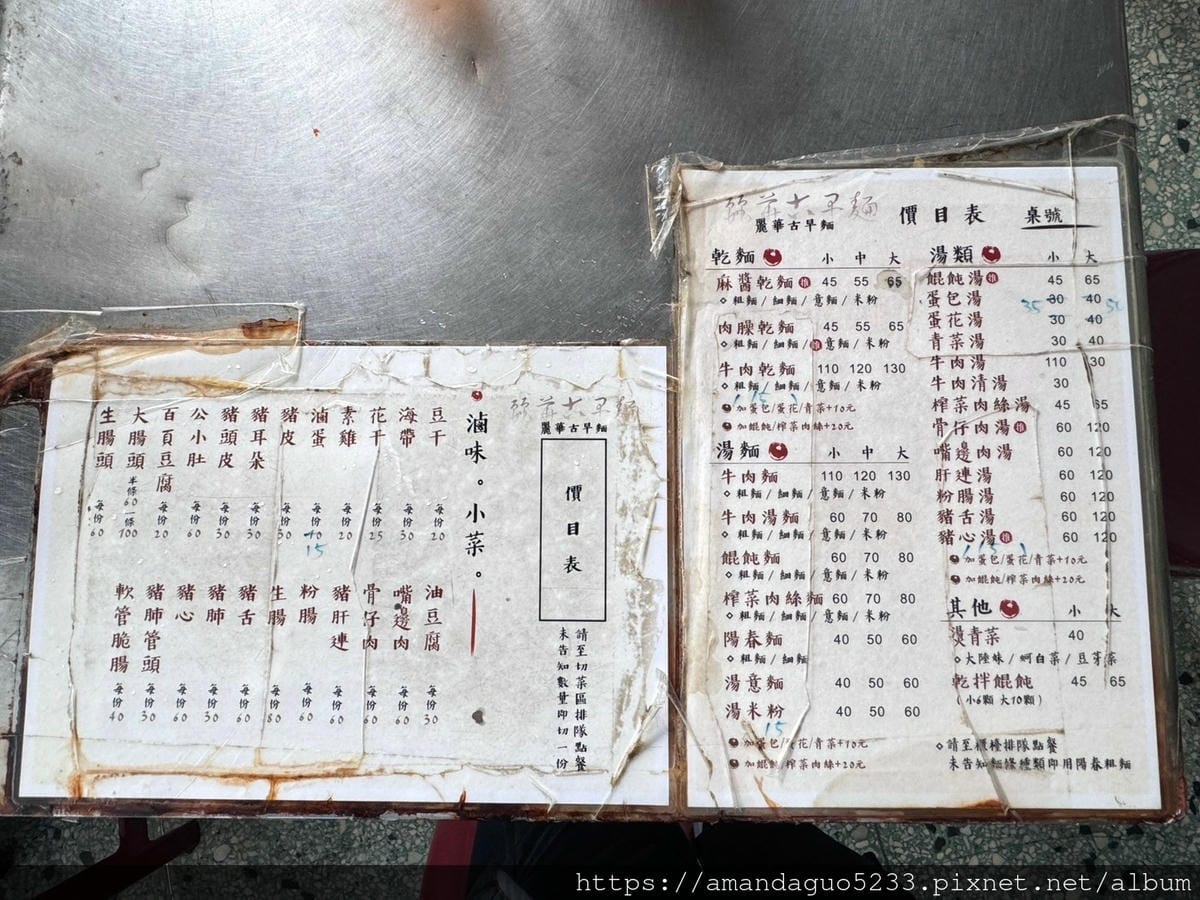 麗華古早麵
價目表
請至切菜區排隊點餐
未告知數量即切一份
滷味。小菜。
豆干 每份20
海帶 每份30
花干 每份25
素雞 每份20
滷蛋 每份10 15
豬皮 每份30
豬耳朵 每份30
豬頭皮 每份30
公小肚 每份60
百頁豆腐 每份20
大腸頭 半條60 一條100
生腸頭 每份60
油豆腐 每份30
嘴邊肉 每份60
骨仔肉 每份60
豬肝連 每份60
粉腸 每份60
生腸 每份80
豬舌 每份60
豬肺 每份30
豬心 每份60
豬肺管頭 每份30
軟管脆腸 每份40
麗華古早麵 價目表 桌號
乾麵 小 中 大
麻醬乾麵 推 45 55 65
◇粗麵/細麵/意麵/米粉
肉臊乾麵 45 55 65
◇粗麵/細麵/推意麵/米粉
牛肉乾麵 110 120 130
◇粗麵/細麵/意麵/米粉
加蛋包/蛋花/青菜+10元
加餛飩/榨菜肉絲+20元
湯麵 小 中 大
牛肉麵 110 120 130
◇粗麵/細麵/意麵/米粉
牛肉湯麵 60 70 80
◇粗麵/細麵/意麵/米粉
餛飩麵 60 70 80
◇粗麵/細麵/意麵/米粉
榨菜肉絲麵 60 70 80
◇粗麵/細麵/意麵/米粉
陽春麵 40 50 60
◇粗麵/細麵
湯意麵 40 50 60
湯米粉 40 50 60
15
加蛋包/蛋花/青菜+10元
加餛飩/榨菜肉絲+20元
湯類 小 大
餛飩湯 推 45 65
蛋包湯 35 30 40 50
蛋花湯 30 40
青菜湯 30 40
牛肉湯 110 130
牛肉清湯 30
榨菜肉絲湯 45 65
骨仔肉湯 推 60 120
嘴邊肉湯 60 120
肝連湯 60 120
粉腸湯 60 120
豬舌湯 60 120
豬心湯 推 60 120
加蛋包/蛋花/青菜+10元
加餛飩/榨菜肉絲+20元
其他 小 大
燙青菜 40
◇大陸妹/蚵白菜/豆芽菜
乾拌餛飩 45 65
(小6顆 大10顆)
◇請至櫃檯排隊點餐
未告知麵條種類即用陽春粗麵
https://amandaguo5233.pixnet.net/album